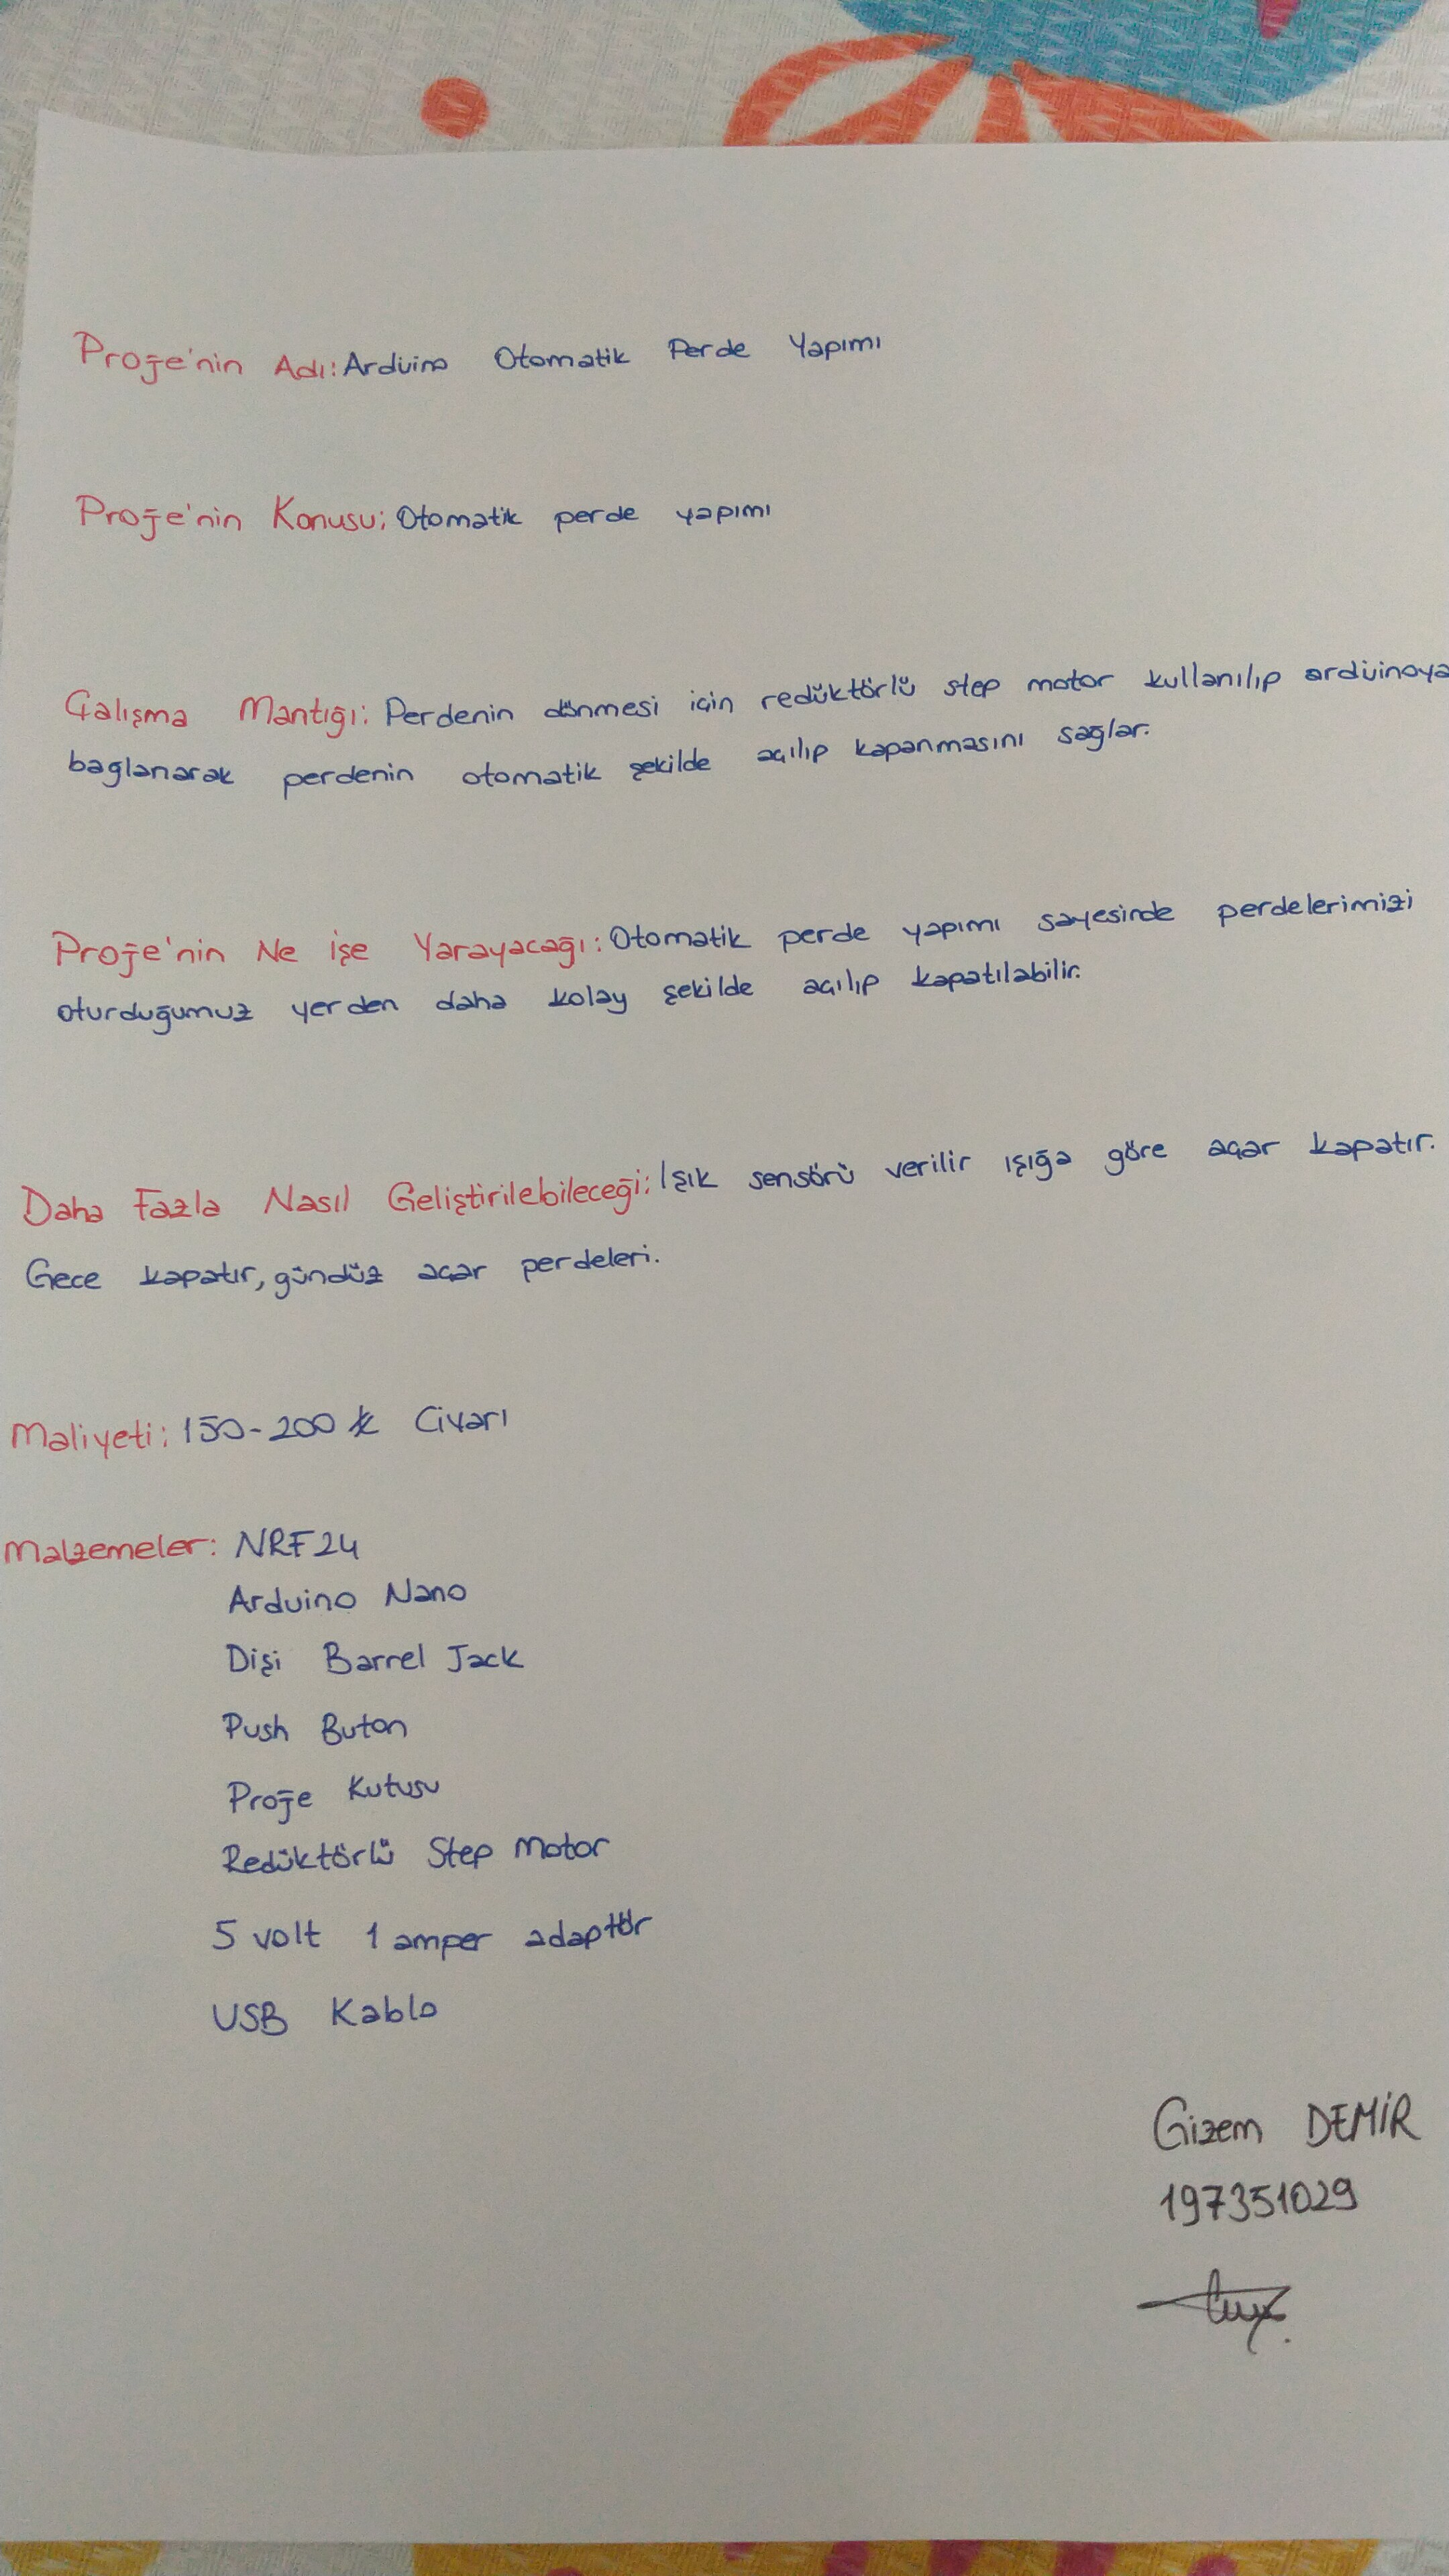 Proje'nin Adı: Arduino Otomatik Perde Yapımı
Proje'nin Konusu: Otomatik perde yapımı
Çalışma Mantığı: Perdenin dönmesi için redüktörlü step motor kullanılıp ardüinoya
bağlanarak perdenin otomatik şekilde açılıp kapanmasını sağlar.
Proje'nin Ne İşe Yarayacağı: Otomatik perde yapımı sayesinde perdelerimizi
oturduğumuz yerden daha kolay şekilde açılıp kapatılabilir.
Daha Fazla Nasıl Geliştirilebileceği: Işık sensörü verilir ışığa göre açar kapatır.
Gece kapatır, gündüz açar perdeleri.
Maliyeti: 150-200 tl Civarı
Malzemeler: NRF24
Arduino Nano
Dişi Barrel Jack
Push Buton
Proje Kutusu
Redüktörlü Step Motor
5 volt 1 amper adaptör
USB Kablo
Gizem DEMİR
197351029